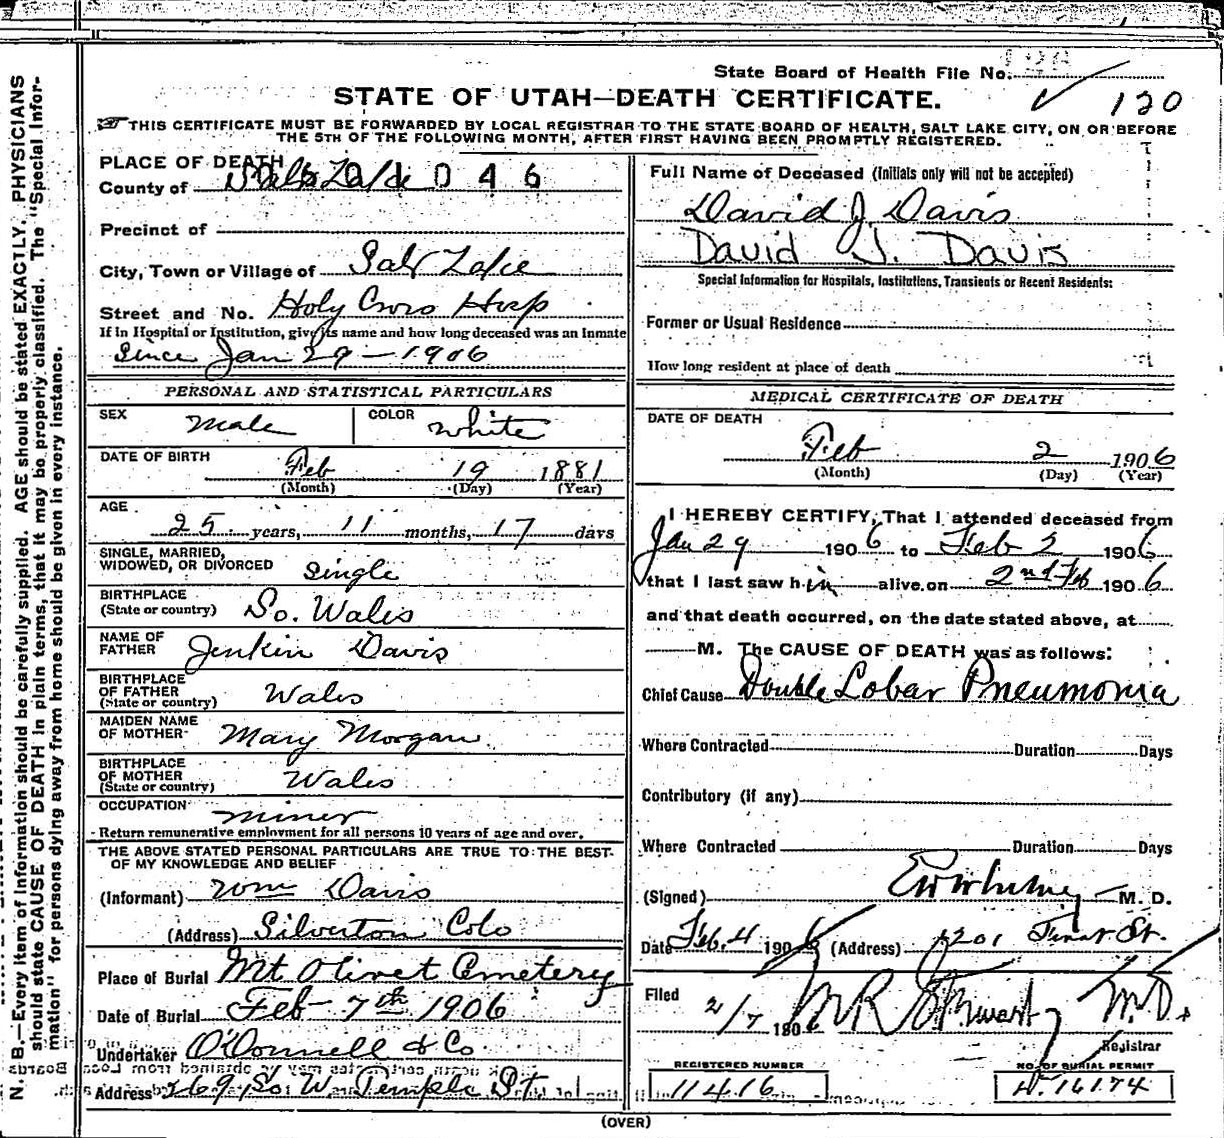 State Board of Health File No.
120
STATE OF UTAH—DEATH CERTIFICATE.
THIS CERTIFICATE MUST BE FORWARDED BY LOCAL REGISTRAR TO THE STATE BOARD OF HEALTH, SALT LAKE CITY, ON OR BEFORE
THE 5TH OF THE FOLLOWING MONTH, AFTER FIRST HAVING BEEN PROMPTLY REGISTERED.
N. B.—Every item of information should be carefully supplied. AGE should be stated EXACTLY. PHYSICIANS
should state CAUSE OF DEATH in plain terms, that it may be properly classified. The "Special Infor-
mation" for persons dying away from home should be given in every instance.
PLACE OF DEATH
County of Salt Lake 046
Precinct of
City, Town or Village of Salt Lake
Street and No. Holy Cross Hosp
If in Hospital or Institution, give its name and how long deceased was an Inmate
Since Jan 29 - 1906
PERSONAL AND STATISTICAL PARTICULARS
SEX Male COLOR White
DATE OF BIRTH
Feb 19 1881
(Month) (Day) (Year)
AGE
25 years, 11 months, 17 days
SINGLE, MARRIED,
WIDOWED, OR DIVORCED Single
BIRTHPLACE
(State or country) So. Wales
NAME OF
FATHER Jenkin Davis
BIRTHPLACE
OF FATHER
(State or country) Wales
MAIDEN NAME
OF MOTHER Mary Morgan
BIRTHPLACE
OF MOTHER
(State or country) Wales
OCCUPATION Miner
Return remunerative employment for all persons 10 years of age and over.
THE ABOVE STATED PERSONAL PARTICULARS ARE TRUE TO THE BEST
OF MY KNOWLEDGE AND BELIEF
(Informant) Wm Davis
(Address) Silverton Colo
Place of Burial Mt Olivet Cemetery
Date of Burial Feb 7th 1906
Undertaker O'Donnell & Co
Address 269 So W. Temple St
Full Name of Deceased (Initials only will not be accepted)
David J Davis
David J. Davis
Special Information for Hospitals, Institutions, Transients or Recent Residents:
Former or Usual Residence
How long resident at place of death
MEDICAL CERTIFICATE OF DEATH
DATE OF DEATH
Feb 2 1906
(Month) (Day) (Year)
I HEREBY CERTIFY, That I attended deceased from
Jan 29 1906 to Feb 2 1906
that I last saw him alive on 2nd Feb 1906
and that death occurred, on the date stated above, at
M. The CAUSE OF DEATH was as follows:
Chief Cause Double Lobar Pneumonia
Where Contracted Duration Days
Contributory (if any)
Where Contracted Duration Days
(Signed) EW Whitney M. D.
Date Feb. 4 1906 (Address) 1201 First St.
Filed 2/7 1906 M R Stewart M.D.
Registrar
REGISTERED NUMBER
11416
NO. OF BURIAL PERMIT
16174
(OVER)